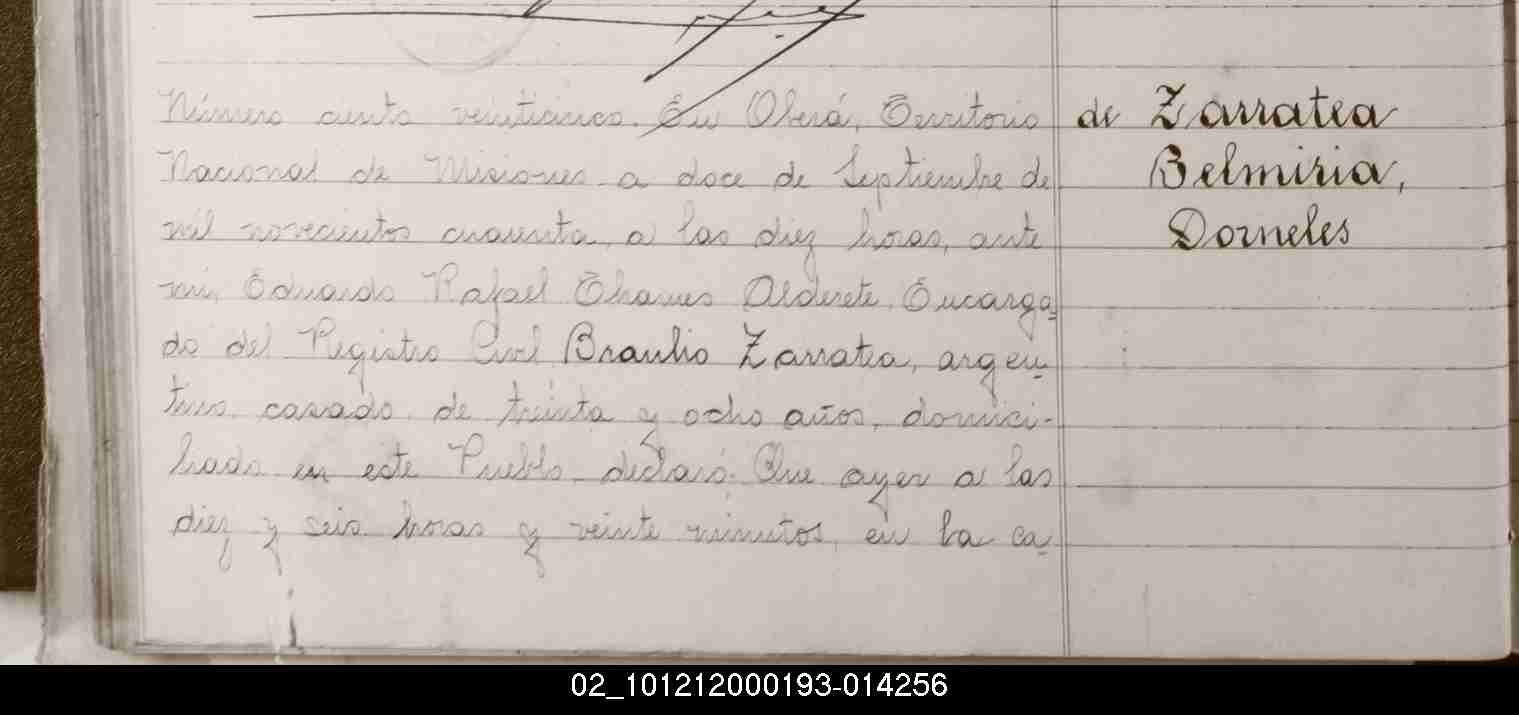 Número ciento veinticinco. En Oberá, Territorio
Nacional de Misiones a doce de Septiembre de
mil novecientos cuarenta, a las diez horas, ante
mi, Eduardo Rafael Chaves Alderete, Encarga-
do del Registro Civil Braulio Zarratea, argen-
tino, casado, de treinta y ocho años, domici-
liado en este Pueblo declaró: Que ayer a las
diez y seis horas y veinte minutos, en la ca-
de Zarratea
Belmiria,
Dorneles
02_101212000193-014256